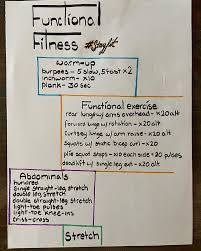 Functional
Fitness #Stayfit
Warm-up
burpees - 5 slow, 5 fast x2
inchworm - x10
plank - 30 sec
Functional exercise
rear lunge w/ arms overhead - x20 alt
forward lunge w/ rotation - x20 alt
curtsey lunge w/ arm raise - x20 alt
squats w/ static bicep curl - x20
plie squat stops - x10 each side + 20 pulses
deadlift w/ single leg ext - x20 alt
Abdominals
hundred
single straight-leg stretch
double leg stretch
double straight leg stretch
light-toe pulses
light-toe knee-ins
criss-cross
Stretch